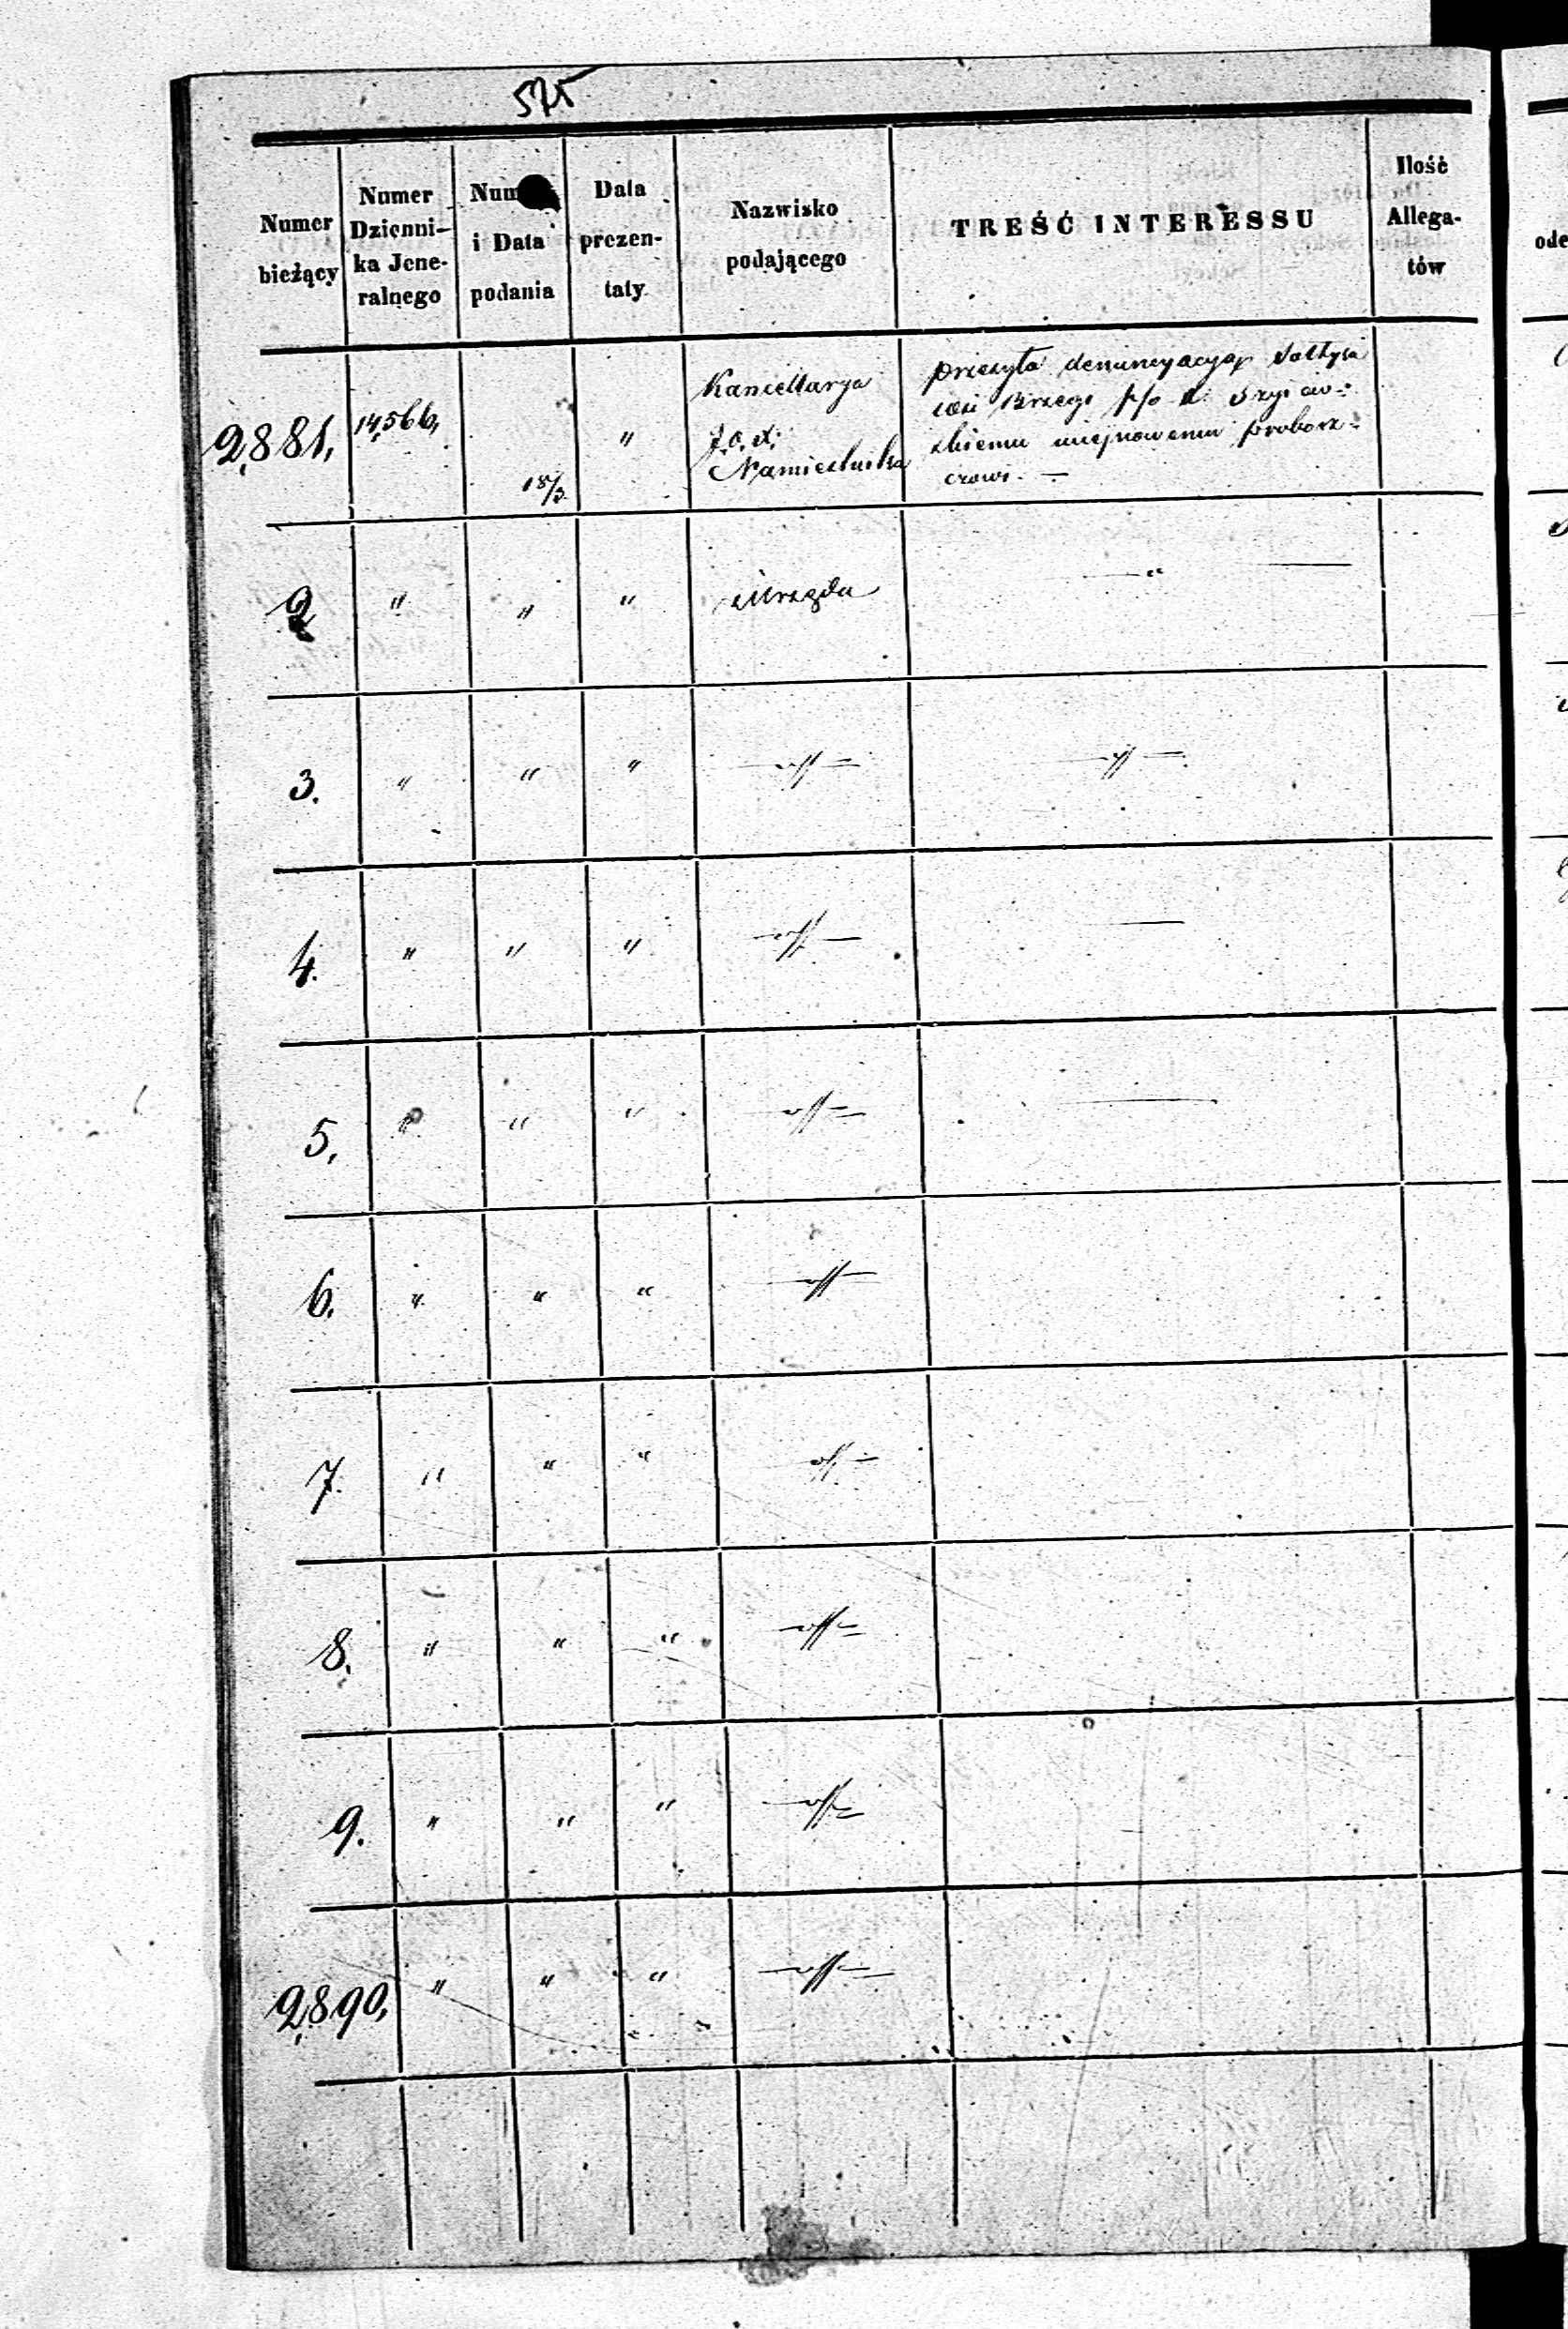 575
Numer
bieżący
Numer
Dzienni-
ka Jene-
ralnego
Num
i Data
podania
Data
prezen-
taty
Nazwisko
podającego
TREŚĆ INTERESSU
Ilość
Allega-
tów
2,881,
14,566,
18/3
"
Kancellarya
J. O. X.
Namiestnika
przesyła denuncyacyą Sołtysa
wsi p/o X.
skiemu miejscowemu probosz-
czowi. —
2
"
"
"
Urzęda
— " —
3.
"
"
"
4.
"
"
"
5,
"
"
"
6.
"
"
"
7.
"
"
"
8.
"
"
"
9.
"
"
"
2,890,
"
"
"
ode